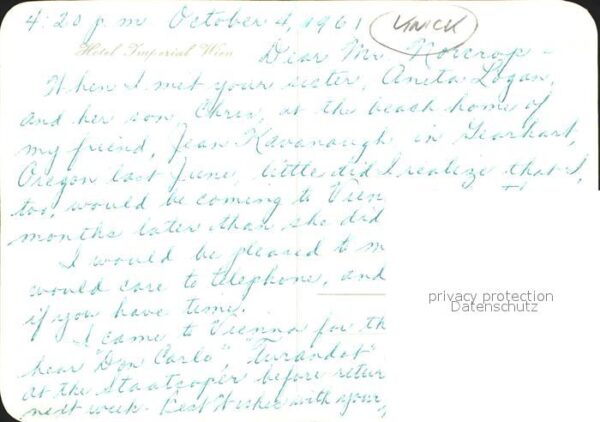 4:20 p.m October 4, 1961
Hotel Imperial Wien
Dear Mr. Norcrop -
When I met your sister, Anita Logan,
and her son, Chris, at the beach home of
my friend, Jean Kavanaugh, in Gearhart,
Oregon last June, little did I realize that I,
too, would be coming to Vien
months later than she did
I would be pleased to m
would care to telephone, and
if you have time.
I came to Vienna for th
hear "Don Carlo", "Turandot"
at the Staatsoper before retur
next week. Best Wishes with your
privacy protection
Datenschutz